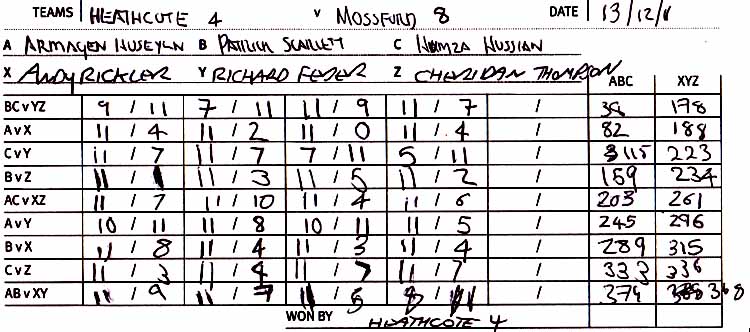 TEAMS HEATHCOTE 4 V MOSSFORD 8 DATE 13/12/11
A ARMAGEN HUSEYEN B PATRICK SCARLETT C HUMZA HUSSIAN
X ANDY RICKLER Y RICHARD FEDER Z CHERIDAN THOMPSON
ABC XYZ
BCvYZ 9 / 11 7 / 11 11 / 9 11 / 7 / 38 178
AvX 11 / 4 11 / 2 11 / 0 11 / 4 / 82 188
CvY 11 / 7 11 / 7 7 / 11 5 / 11 / 115 223
BvZ 11 / 1 11 / 3 11 / 5 11 / 2 / 159 234
ACvXZ 11 / 7 11 / 10 11 / 4 11 / 6 / 203 261
AvY 10 / 11 11 / 8 10 / 11 11 / 5 / 245 296
BvX 11 / 8 11 / 4 11 / 3 11 / 4 / 289 315
CvZ 11 / 3 11 / 4 11 / 7 11 / 7 / 333 336
ABvXY 11 / 9 11 / 7 11 / 5 8 / 11 / 374 368
WON BY HEATHCOTE 4